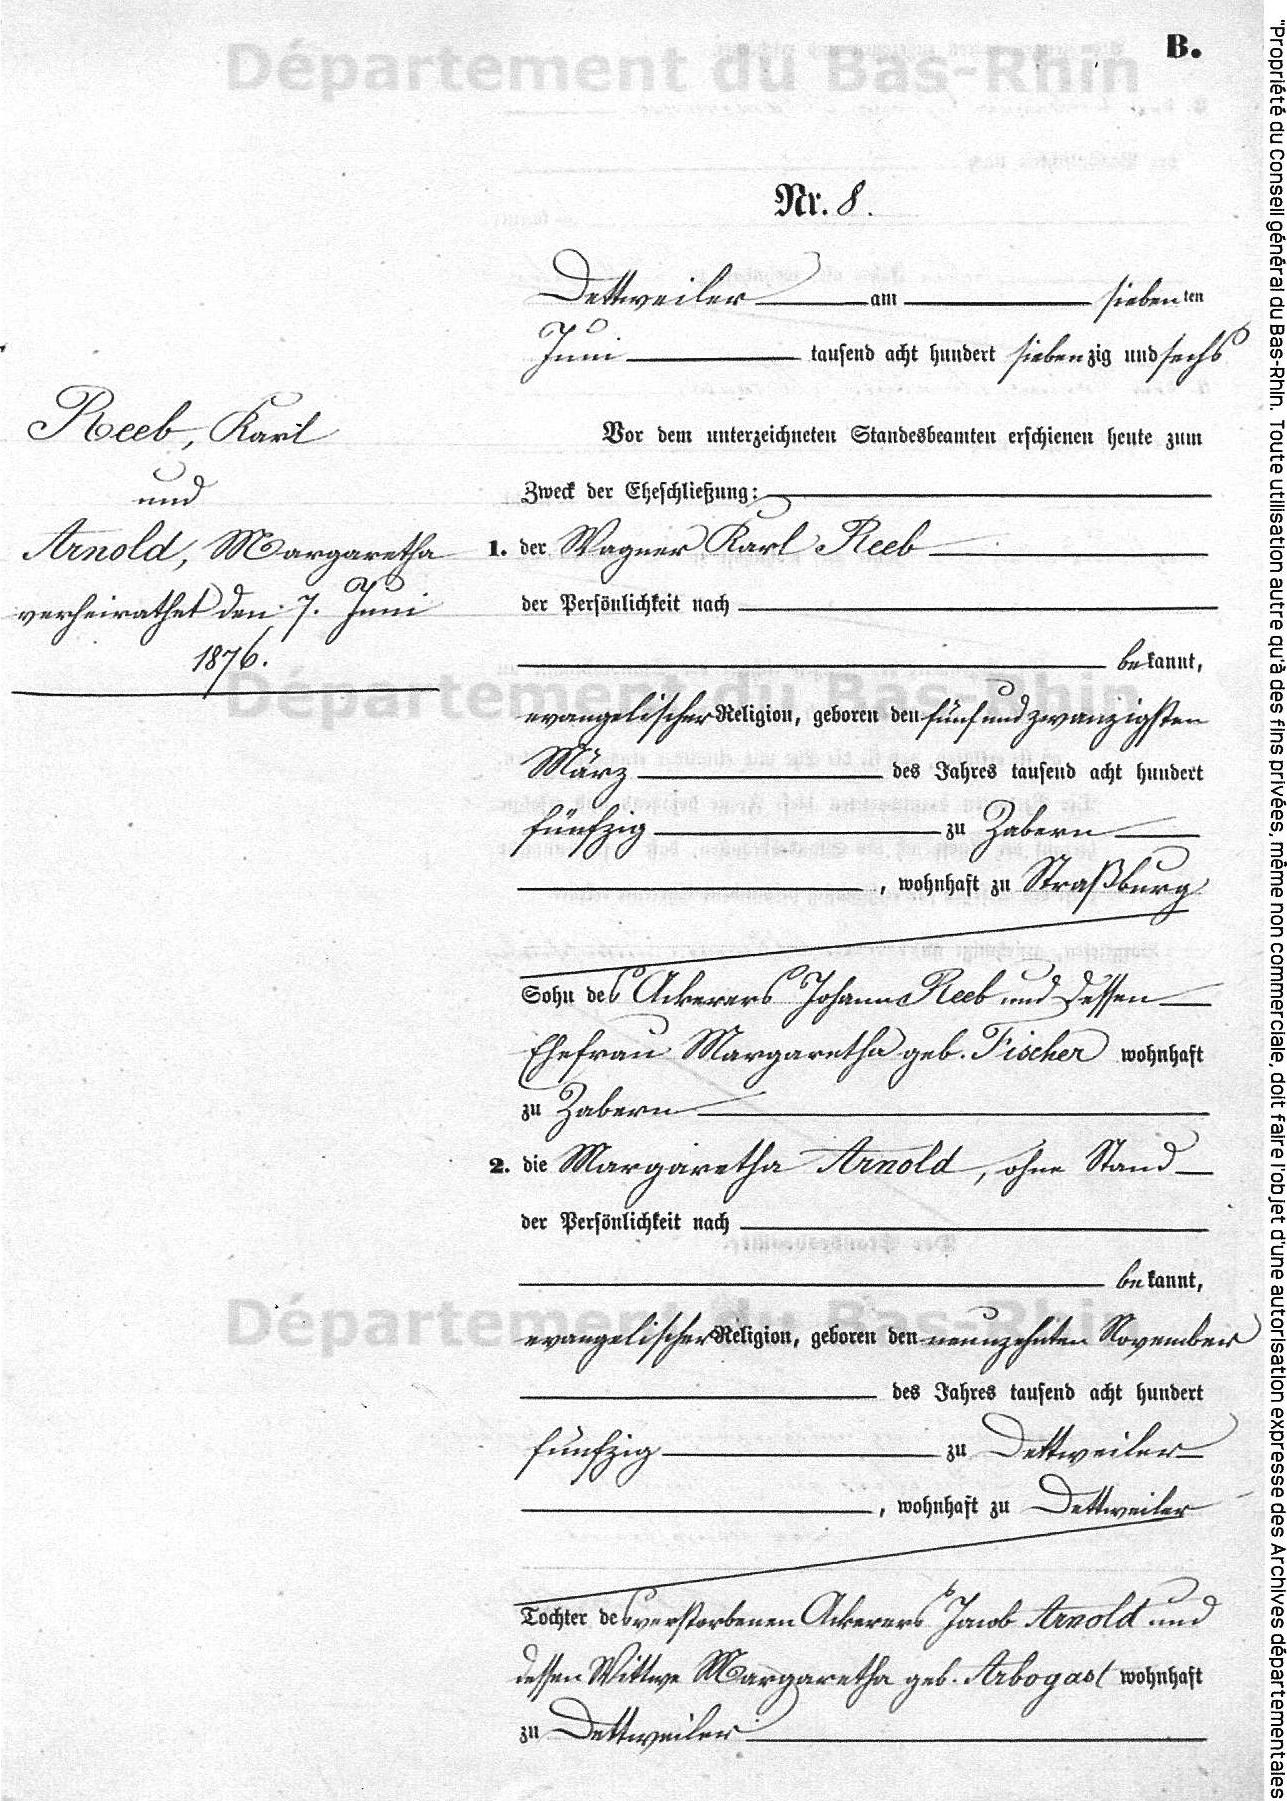 B.
Nr. 8.
Dettweiler am siebenten
Juni tausend acht hundert siebenzig und sechs
Reeb, Karl
und
Arnold, Margaretha
verheirathet den 7. Juni
1876.
Vor dem unterzeichneten Standesbeamten erschienen heute zum
Zweck der Eheschließung:
1. der Wagner Karl Reeb
der Persönlichkeit nach
bekannt,
evangelischer Religion, geboren den fünf und zwanzigsten
März des Jahres tausend acht hundert
fünfzig zu Zabern
, wohnhaft zu Straßburg
Sohn des Ackerers Johann Reeb und dessen
Ehefrau Margaretha geb. Fischer wohnhaft
zu Zabern
2. die Margaretha Arnold, ohne Stand
der Persönlichkeit nach
bekannt,
evangelischer Religion, geboren den neunzehnten November
des Jahres tausend acht hundert
fünfzig zu Dettweiler
, wohnhaft zu Dettweiler
Tochter des verstorbenen Ackerers Jacob Arnold und
dessen Wittwe Margaretha geb. Arbogast wohnhaft
zu Dettweiler
Département du Bas-Rhin
Département du Bas-Rhin
Département du Bas-Rhin
"Propriété du Conseil général du Bas-Rhin. Toute utilisation autre qu'à des fins privées, même non commerciale, doit faire l'objet d'une autorisation expresse des Archives départementales